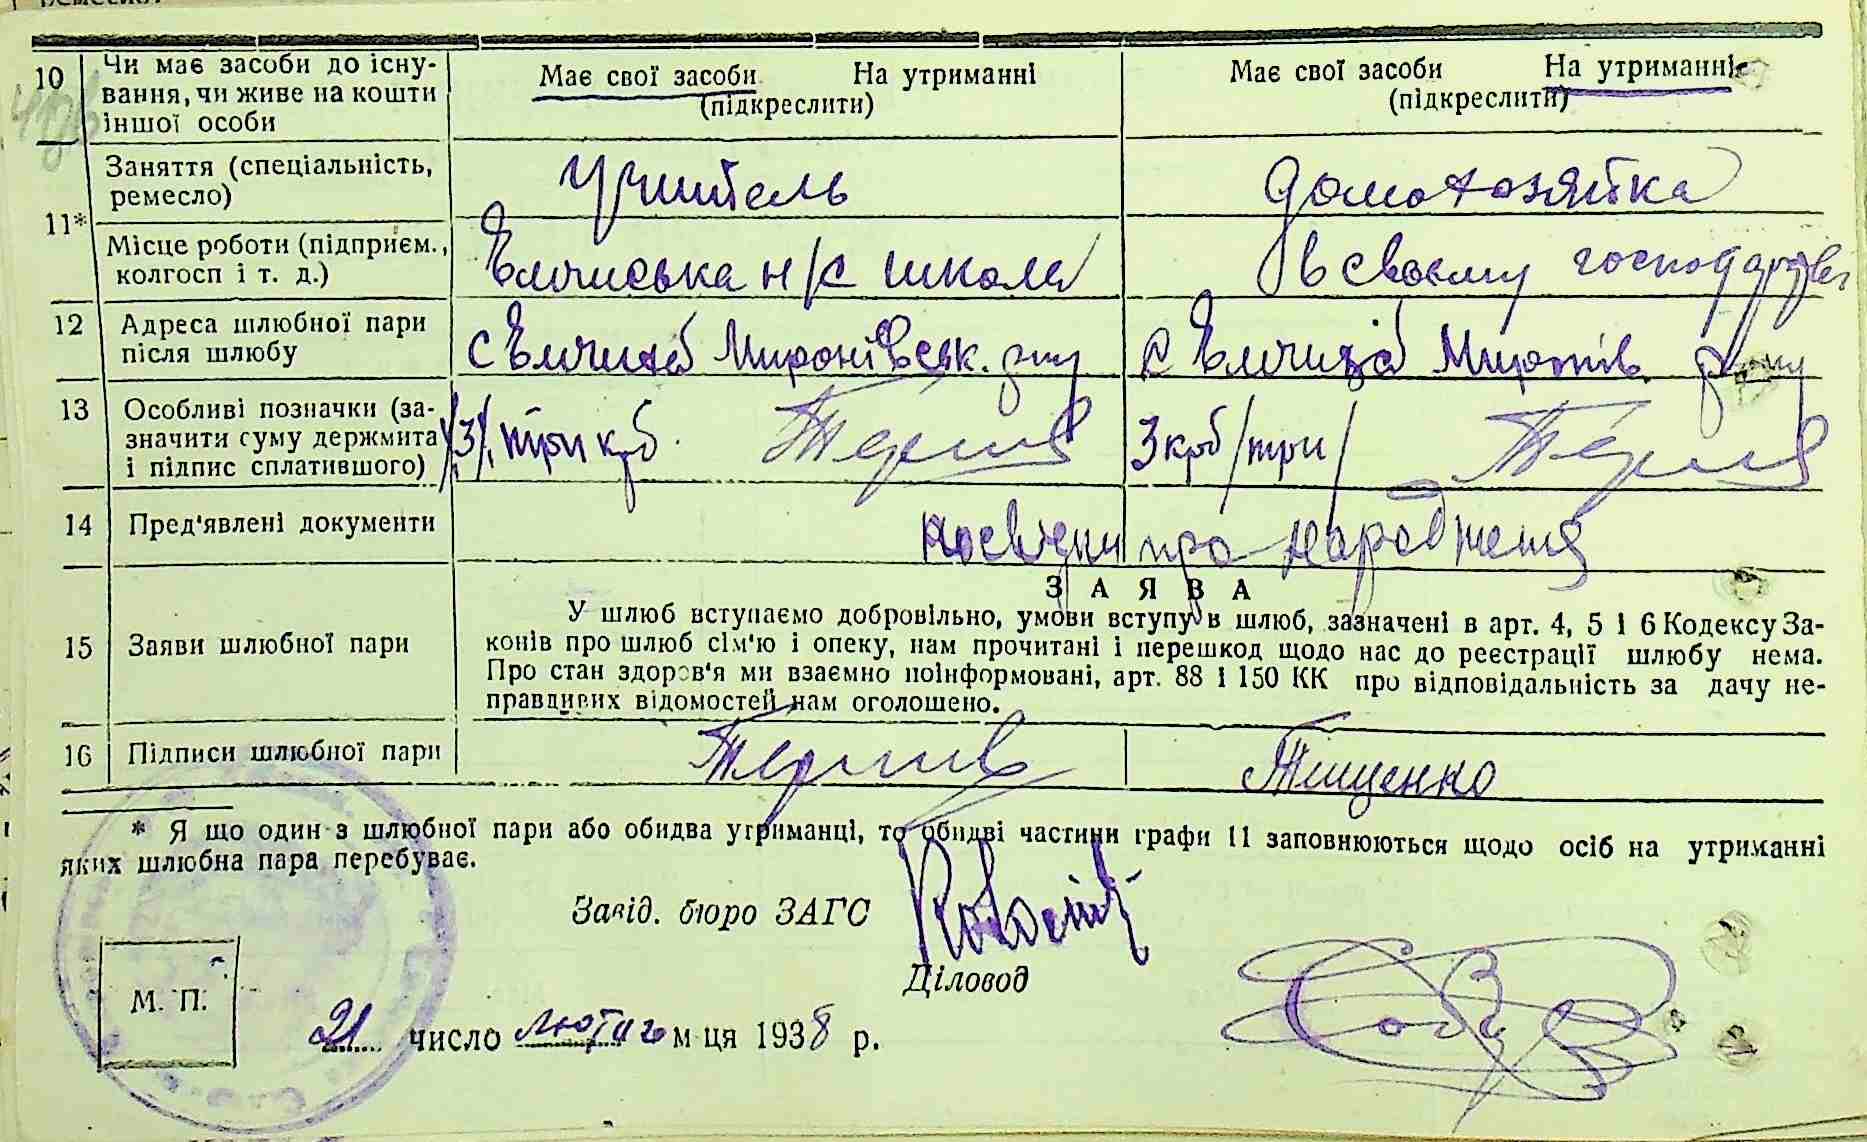 10 Чи має засоби до існу-
вання, чи живе на кошти
іншої особи
Має свої засоби На утриманні
(підкреслити)
Має свої засоби На утриманні
(підкреслити)
11*
Заняття (спеціальність,
ремесло)
Учитель
домохозяйка
Місце роботи (підприєм.,
колгосп і т. д.)
н/с школа
в своєму
12 Адреса шлюбної пари
після шлюбу
с Миронівськ. р-ну
с Миронів. р-ну
13 Особливі позначки (за-
значити суму держмита
і підпис сплатившого)
/3/ три крб.
3 крб /три/
14 Пред'явлені документи
посвідки про народження
ЗАЯВА
15 Заяви шлюбної пари
У шлюб вступаємо добровільно, умови вступу в шлюб, зазначені в арт. 4, 5 і 6 Кодексу За-
конів про шлюб сім'ю і опеку, нам прочитані і перешкод щодо нас до реєстрації шлюбу нема.
Про стан здоров'я ми взаємно поінформовані, арт. 88 і 150 КК про відповідальність за дачу не-
правдивих відомостей нам оголошено.
16 Підписи шлюбної пари
Тищенко
* Я що один з шлюбної пари або обидва утриманці, то обидві частини графи 11 заповнюються щодо осіб на утриманні
яких шлюбна пара перебуває.
Завід. бюро ЗАГС
Діловод
М. П.
21 число лютого м-ця 1938 р.